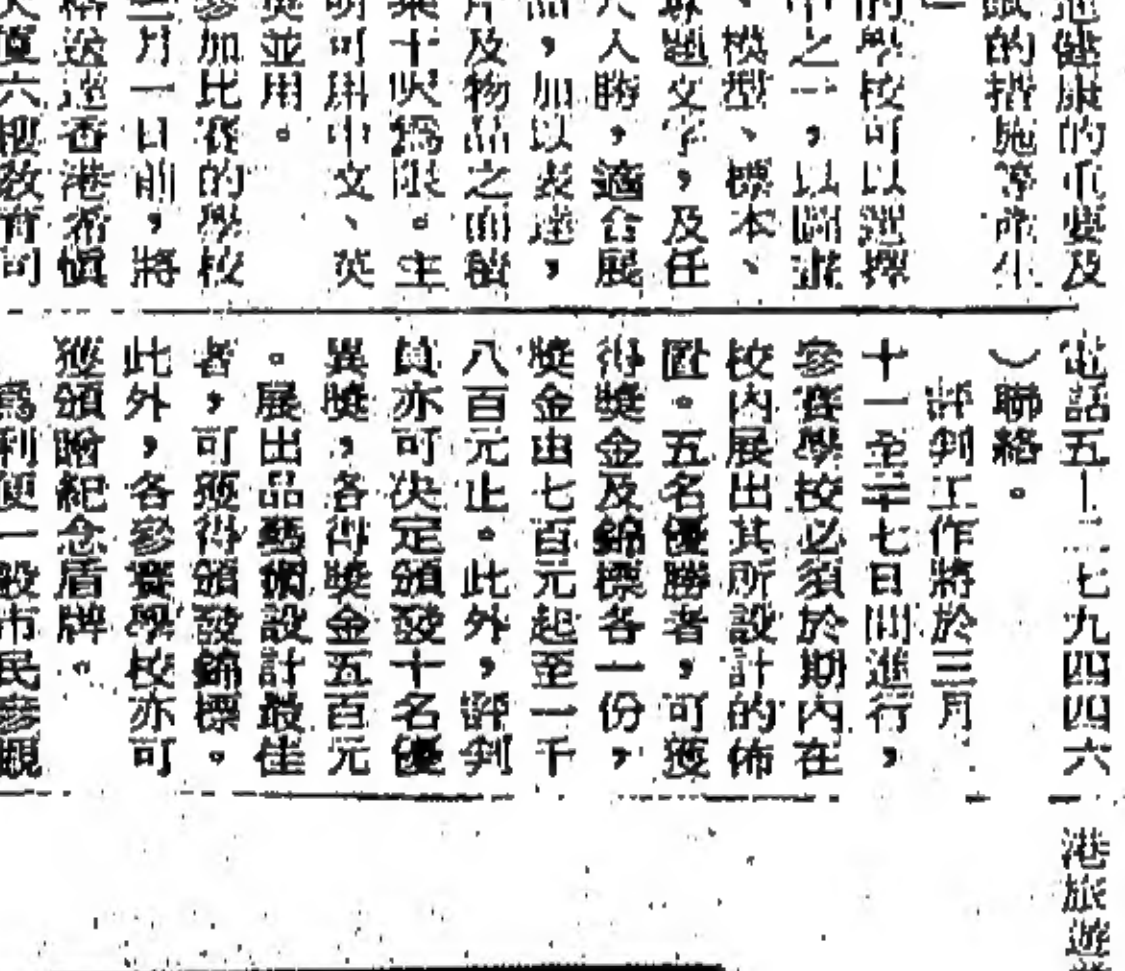 進健康的重要及
鼠的措施等衛生
的學校可以選擇
中之一，以圖畫
、模型、標本、
題文字，及任
人勝，適合展
品，加以表達，
片及物品之面積
十呎爲限。主
明可用中文、英
並用。
參加比賽的學校
月一日前，將
送達香港希愼
大廈六樓教育司
電話五—二七九四四六
）聯絡。
評判工作將於三月
十一至二十七日間進行，
參賽學校必須於期內在
校內展出其所設計的佈
置。五名優勝者，可獲
得獎金及錦標各一份，
獎金由七百元起至一千
八百元止。此外，評判
員亦可決定頒發十名優
異獎，各得獎金五百元
。展出品藝術設計最佳
者，可獲得頒發錦標。
此外，各參賽學校亦可
獲頒贈紀念盾牌。
爲利便一般市民參觀
港旅遊